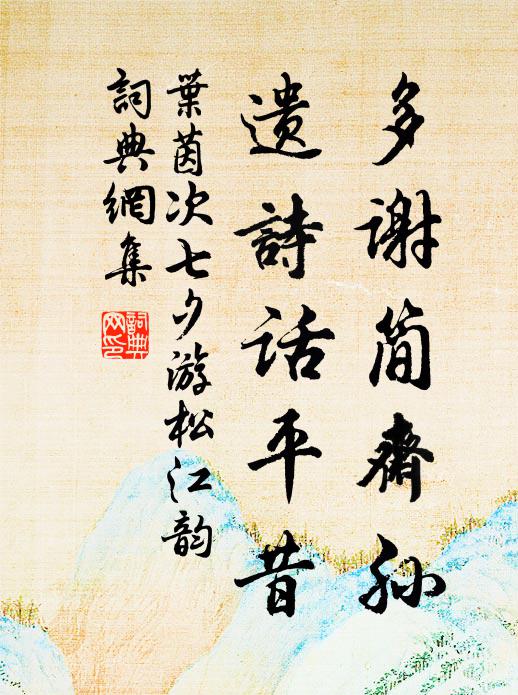 多谢简齋孙
遗詩话平昔
葉茵次七夕游松江韵
詞典網集
詞典
网印